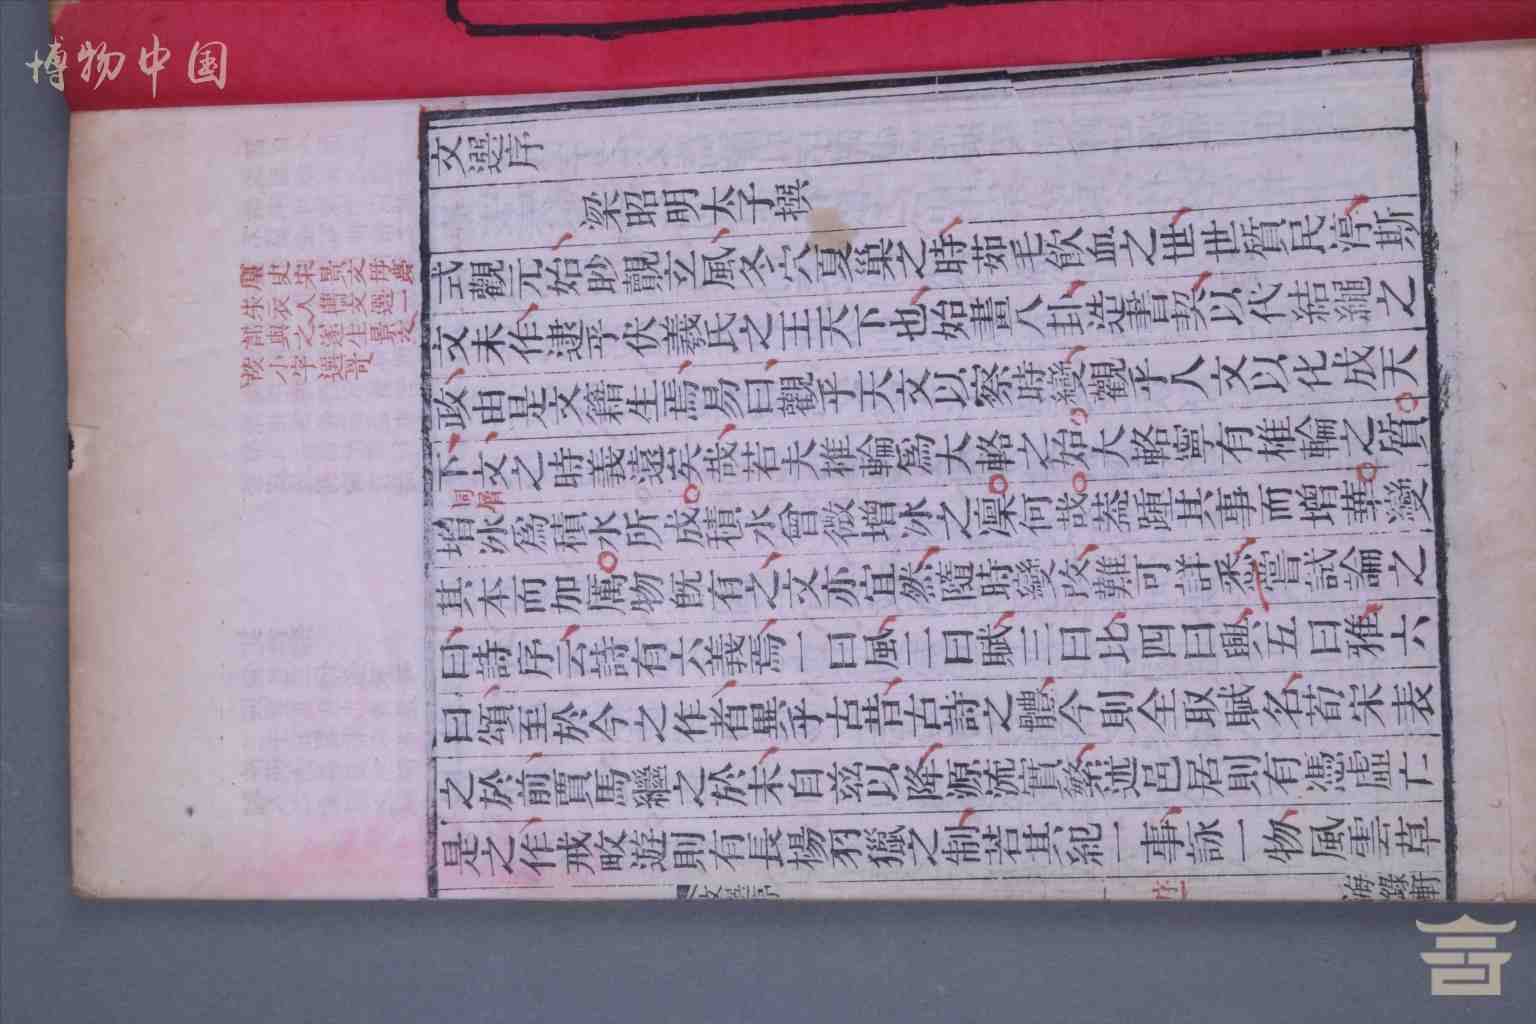 博物中国
文選序
梁昭明太子撰
式觀元始眇覿玄風冬穴夏巢之時茹毛飲血之世世質民淳斯
文未作逮乎伏羲氏之王天下也始畫八卦造書契以代結繩之
政由是文籍生焉易曰觀乎天文以察時變觀乎人文以化成天
下文之時義遠矣哉若夫椎輪爲大輅之始大輅寧有椎輪之質
同層
增冰爲積水所成積水曾微增冰之凜何哉蓋踵其事而增華變
其本而加厲物旣有之文亦宜然隨時變改難可詳悉嘗試論之
曰詩序云詩有六義焉一曰風二曰賦三曰比四曰興五曰雅六
曰頌至於今之作者異乎古昔古詩之體今則全取賦名荀宋表
之於前賈馬繼之於末自茲以降源流寔繁述邑居則有憑虛亡
是之作戒畋遊則有長楊羽獵之制若其紀一事詠一物風雲草
文選序 序一 海錄軒
史宋景文母夢
朱衣人攜文選一
部與之遂生景文
小字選哥